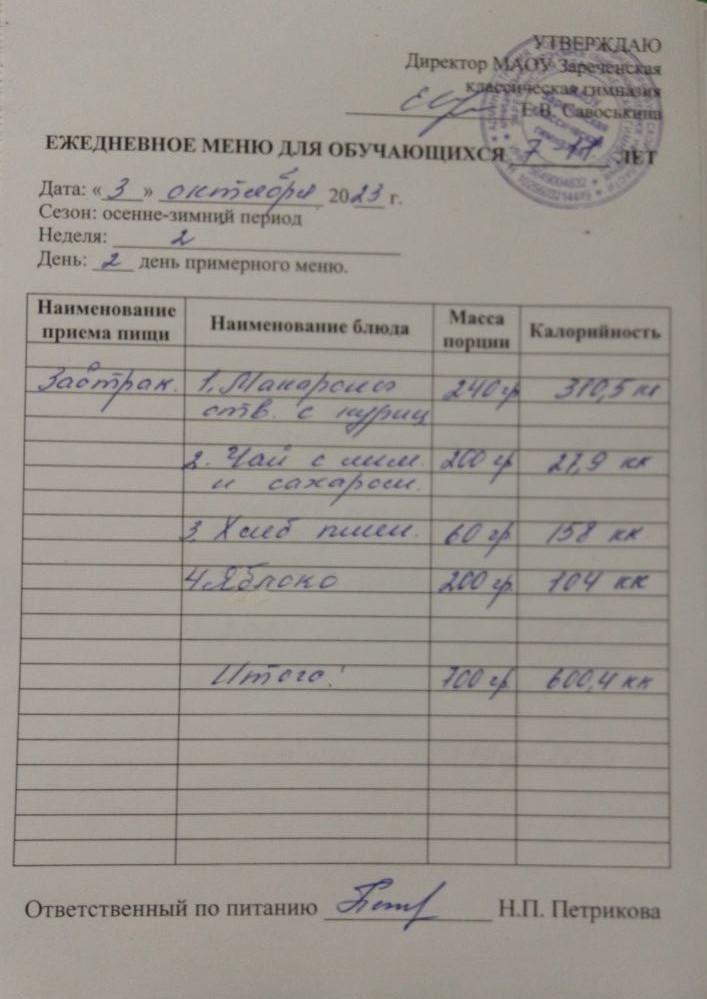 УТВЕРЖДАЮ
Директор МАОУ Зареченская
классическая гимназия
Е.В. Савоськина
ЕЖЕДНЕВНОЕ МЕНЮ ДЛЯ ОБУЧАЮЩИХСЯ 7 - 11 ЛЕТ
Дата: «3» октября 2023 г.
Сезон: осенне-зимний период
Неделя: 2
День: 2 день примерного меню.
Наименование приема пищи Наименование блюда Масса порции Калорийность
Завтрак. 1. 240 гр 310,5 кк
отв. с куриц
2. Чай с лим. 200 гр 27,9 кк
и сахаром.
3. Хлеб пшен. 60 гр. 158 кк.
4. Яблоко 200 гр. 104 кк
Итого: 700 гр 600,4 кк
Ответственный по питанию Н.П. Петрикова